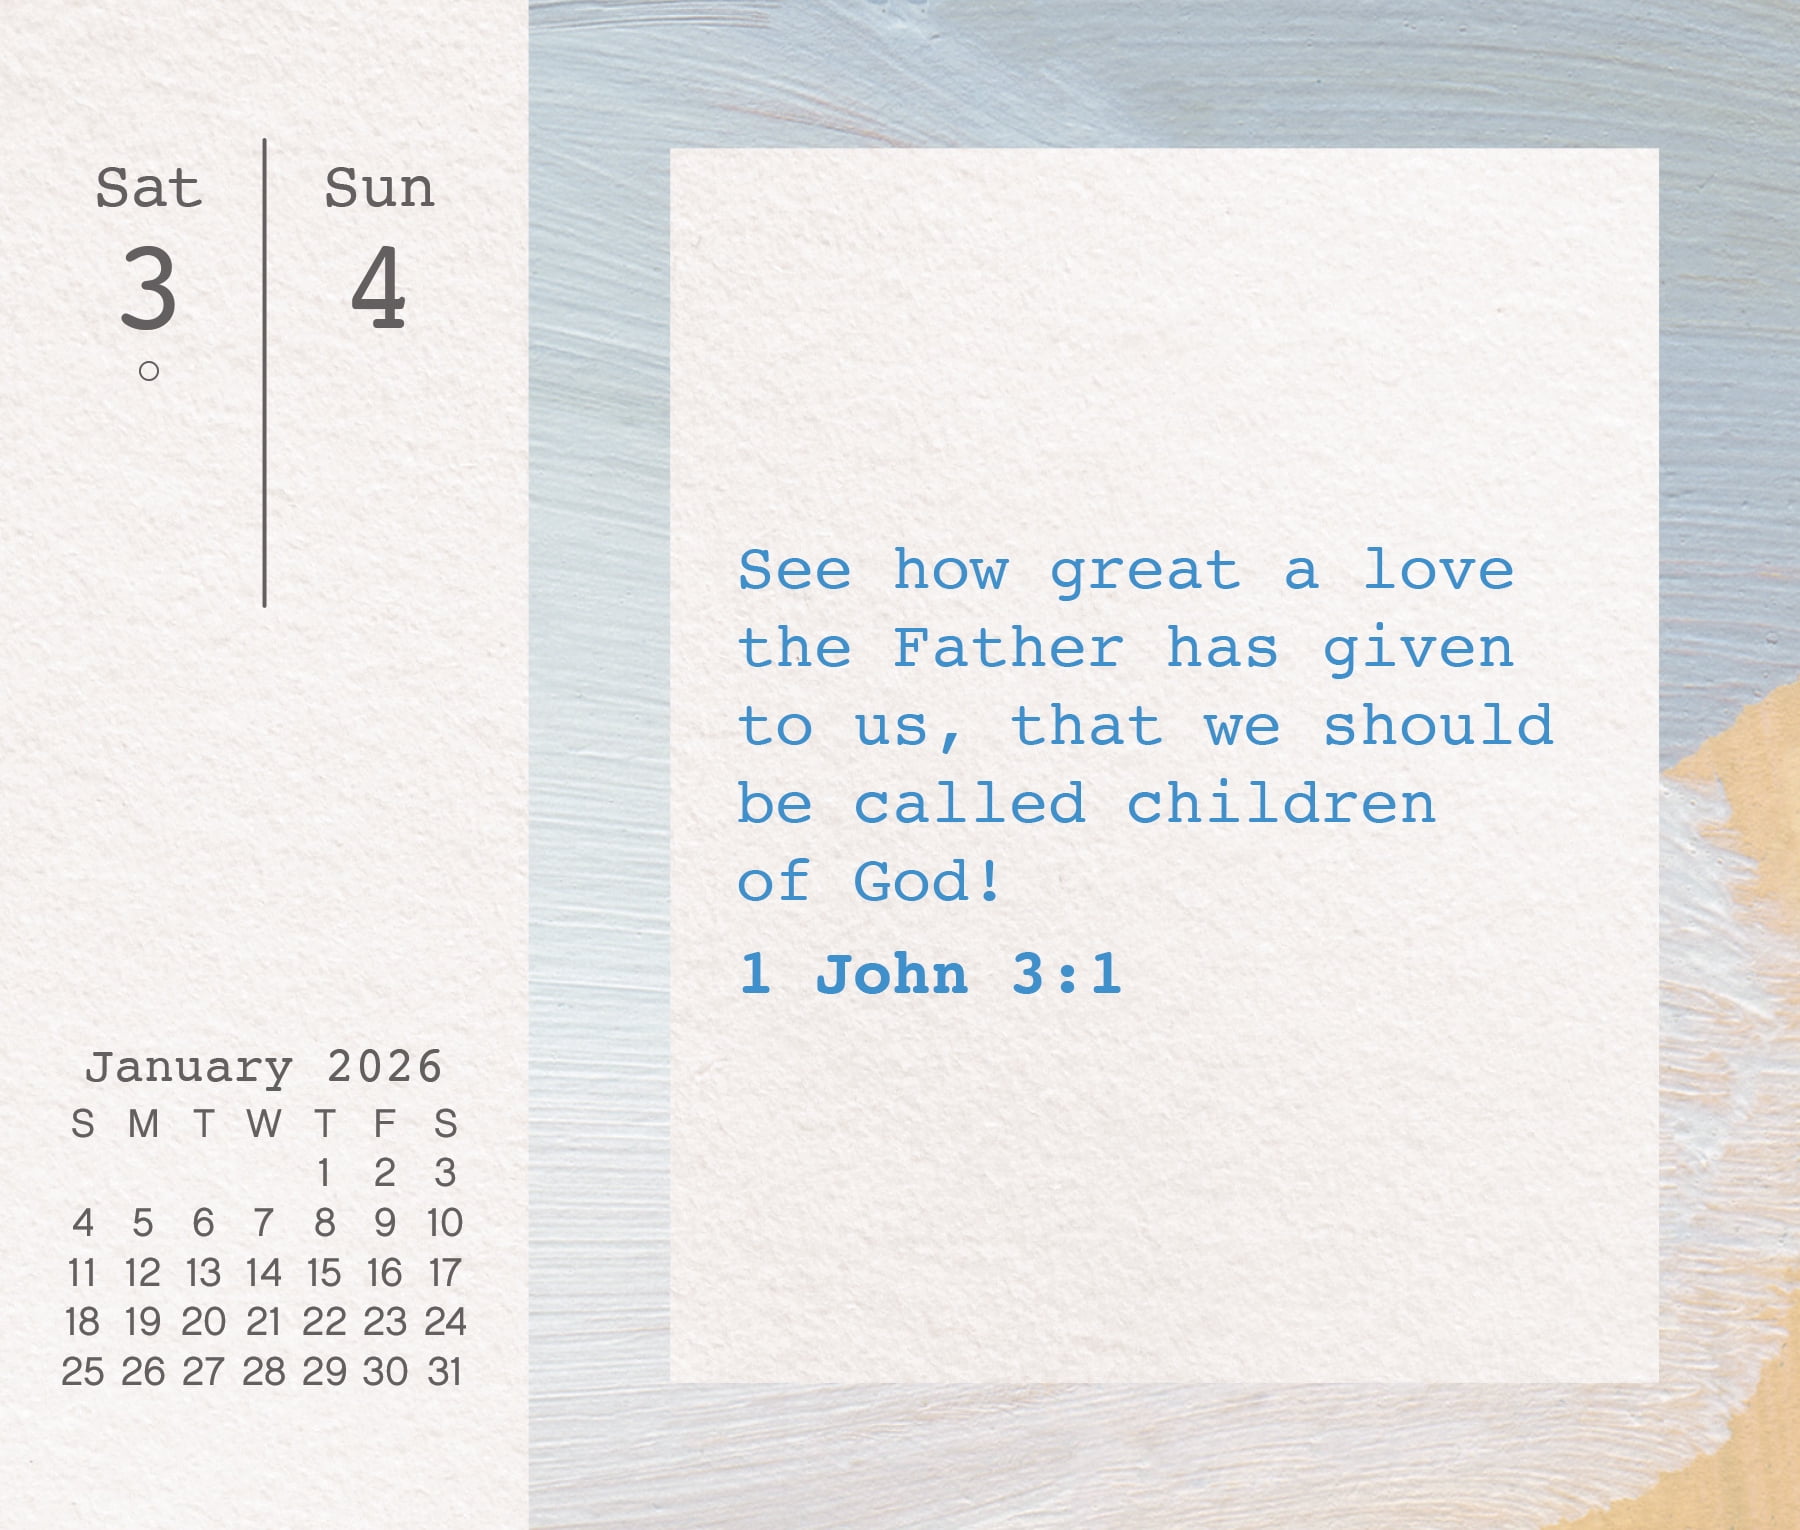 Sat
3
Sun
4
See how great a love
the Father has given
to us, that we should
be called children
of God!
1 John 3:1
January 2026
S M T W T F S
1 2 3
4 5 6 7 8 9 10
11 12 13 14 15 16 17
18 19 20 21 22 23 24
25 26 27 28 29 30 31